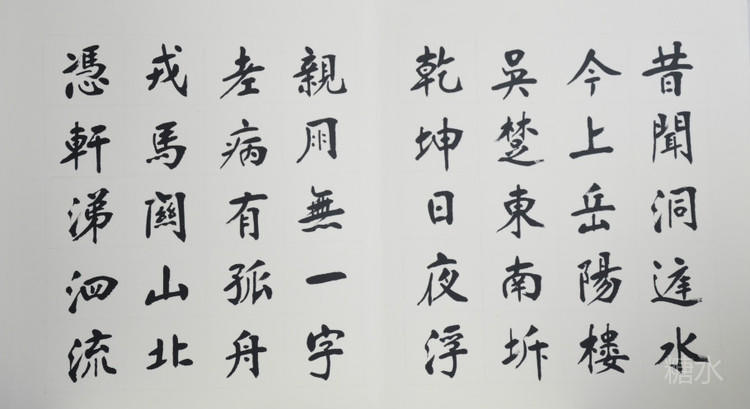 昔聞洞庭水
今上岳陽樓
吳楚東南坼
乾坤日夜浮
親朋無一字
老病有孤舟
戎馬關山北
憑軒涕泗流
糖水